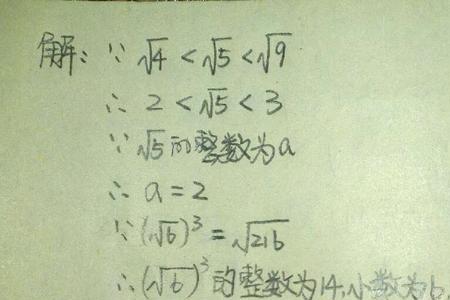 解：∵ √4 < √5 < √9
∴ 2 < √5 < 3
∵ √5的整数为a
∴ a = 2
∵ (√6)³ = √216
∴ (√6)³的整数为14,小数为b